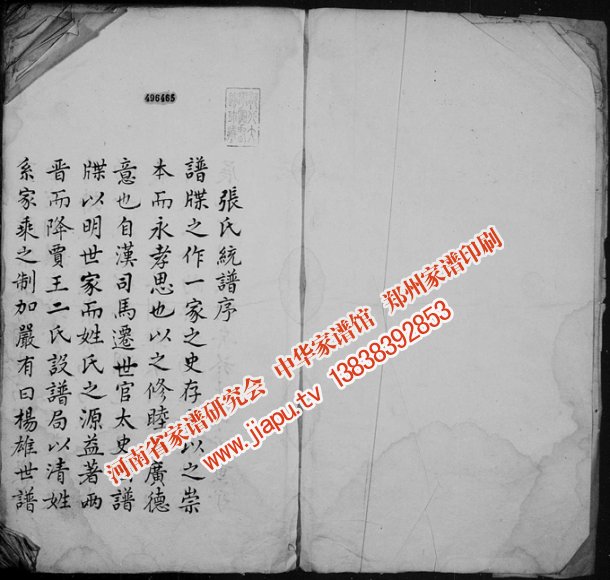 496465
張氏統譜序
譜牒之作一家之史存以之崇
本而永孝思也以之修睦廣德
意也自漢司馬遷世官太史譜
牒以明世家而姓氏之源益著兩
晉而降賈王二氏設譜局以清姓
系家乘之制加嚴有曰楊雄世譜
河南省家谱研究会 中华家谱馆 郑州家谱印刷
www.jiapu.tv 13838392853